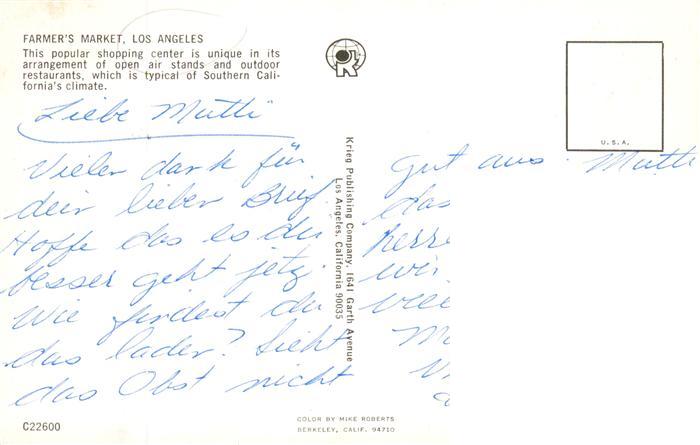 FARMER'S MARKET, LOS ANGELES
This popular shopping center is unique in its
arrangement of open air stands and outdoor
restaurants, which is typical of Southern Cali-
fornia's climate.
Liebe Mutti
Vielen dank für
dein lieber Brief
Hoffe das es du
besser geht jetz.
Wie findest du
das laden? Sieht
das Obst nicht
gut aus. Mutti
das
wir
C22600
Krieg Publishing Company, 1641 Garth Avenue
Los Angeles, California 90035
U.S.A.
COLOR BY MIKE ROBERTS
BERKELEY, CALIF. 94710